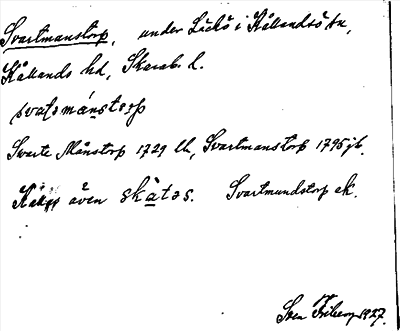 Svartmanstorp, under Läckö i Kållandsö sn,
Kållands hd, Skarab. l.
svatsmánstorp
Svarte Månstorp 1729 lh, Svartmanstorp 1795 jb.
även skàtəs. Svartmundstorp ek.
Sven Friberg 1927.